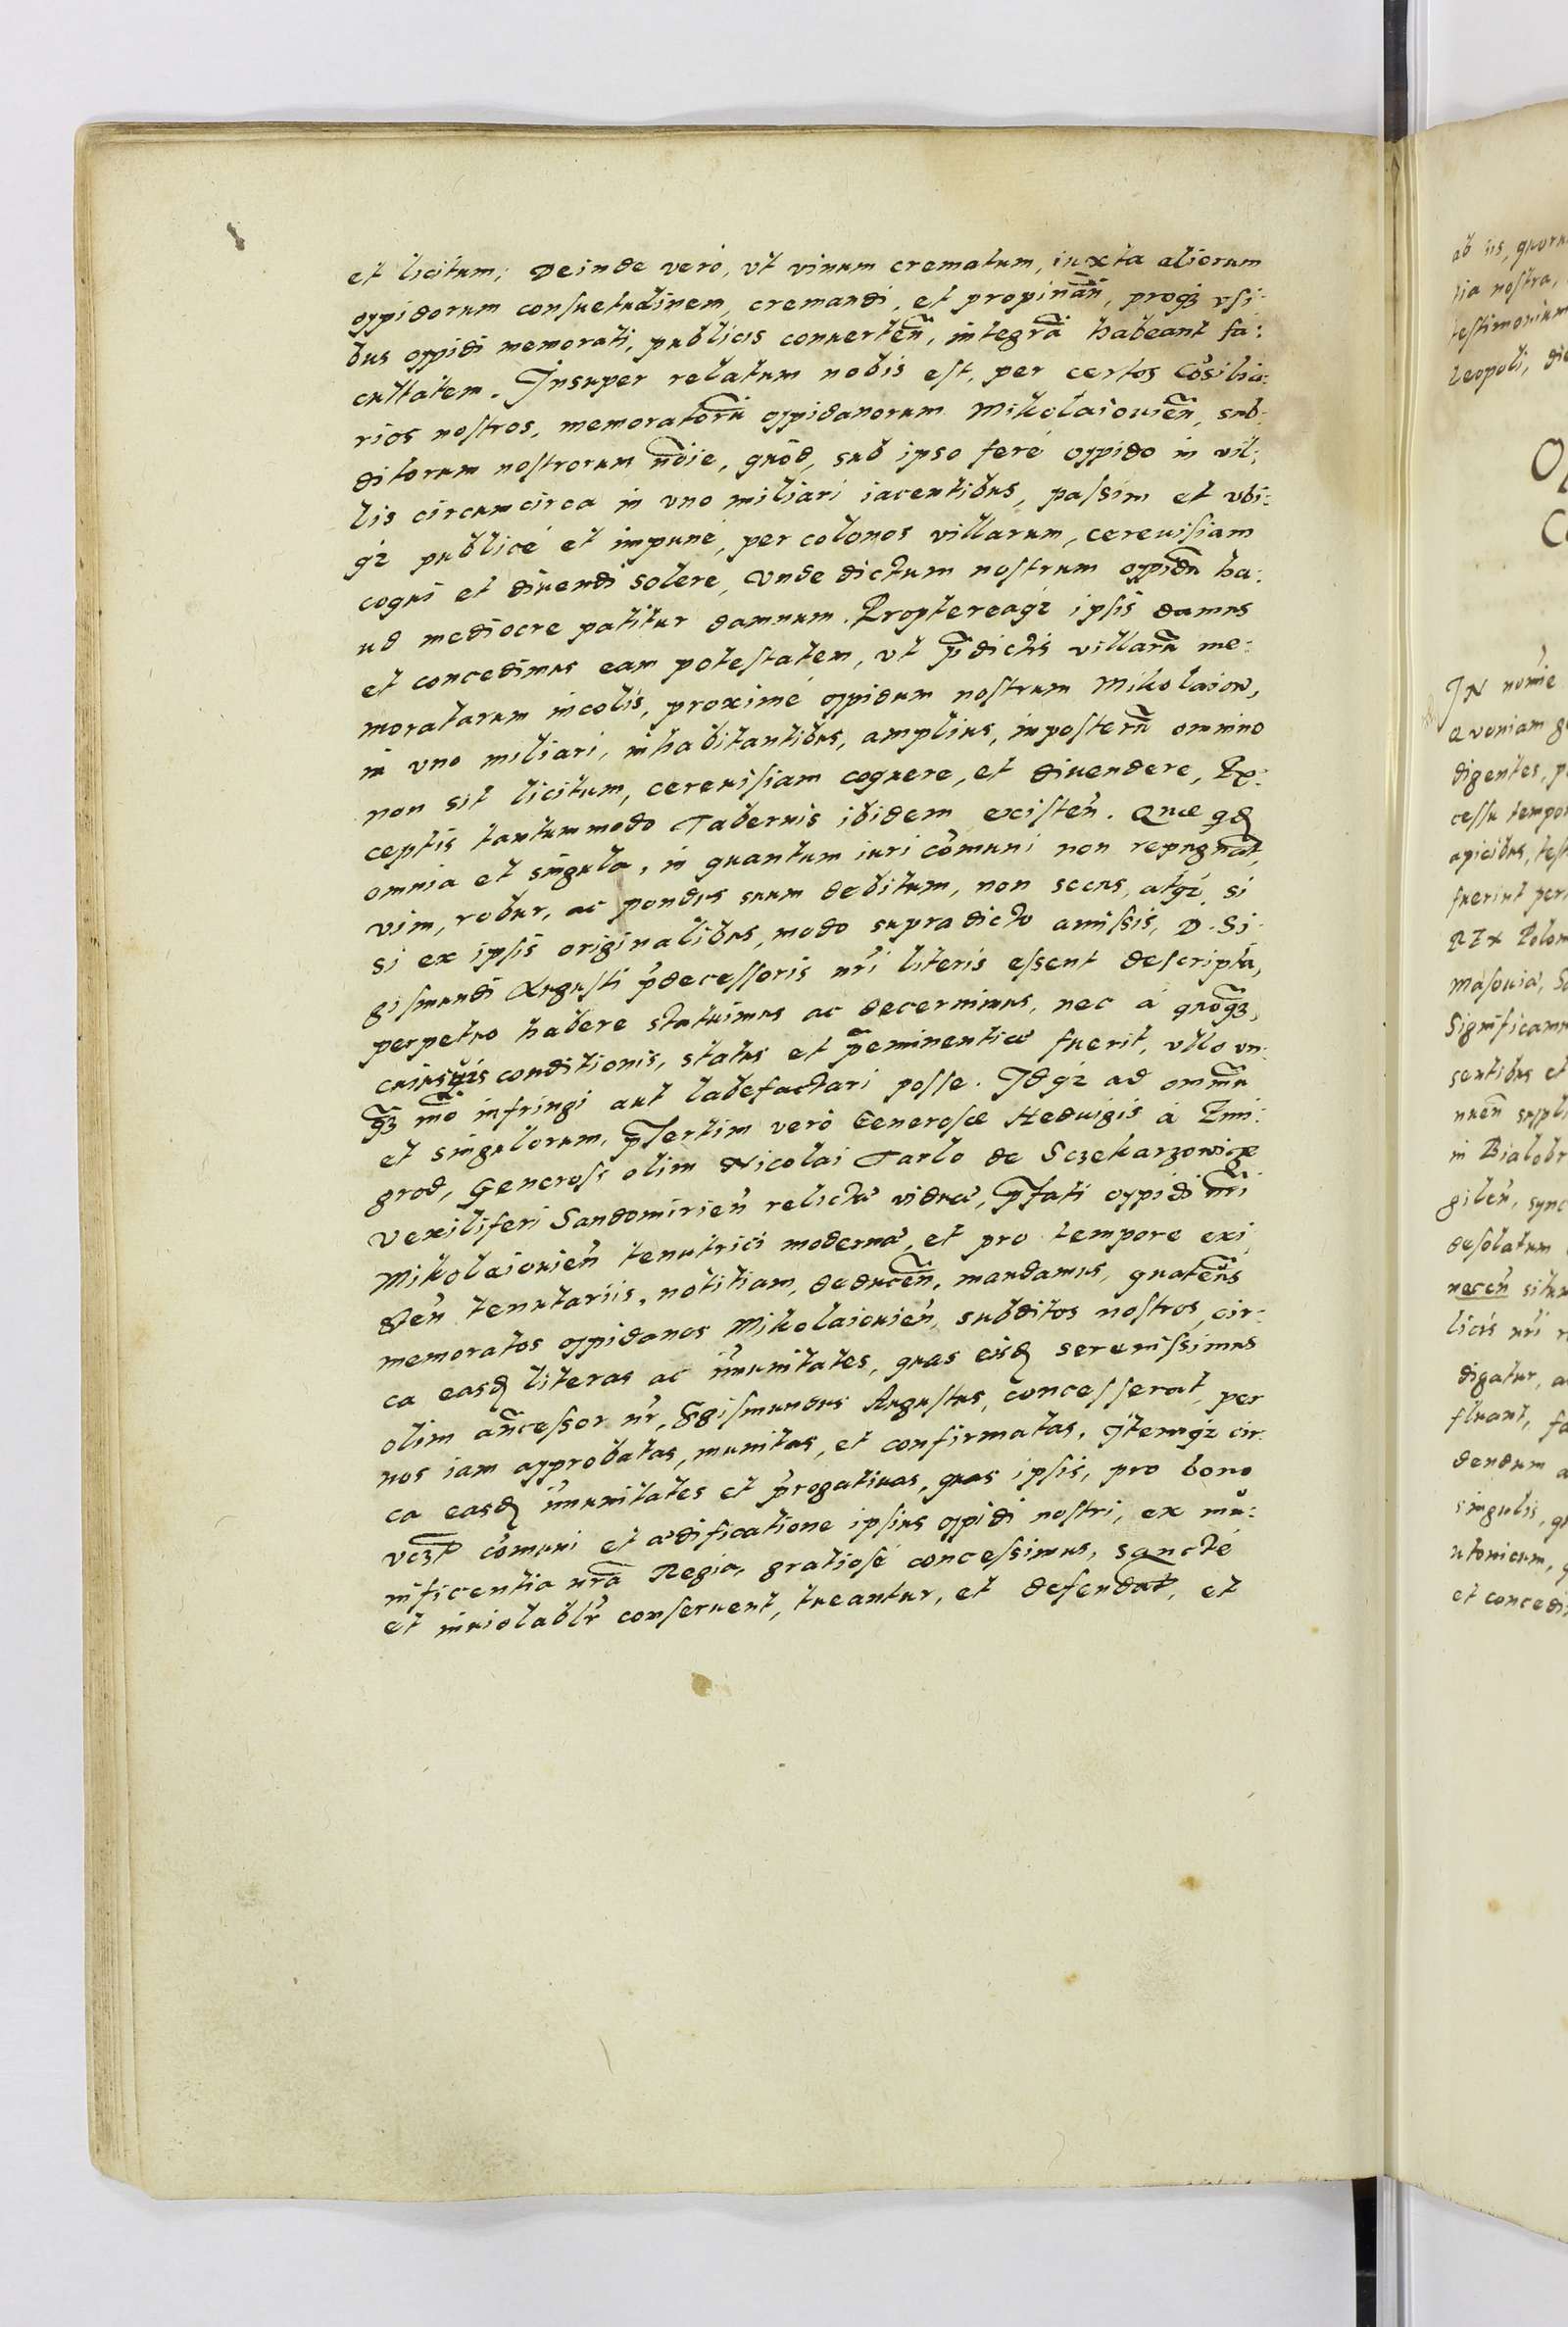 et licitum; Deinde verò, vt vinum crematum, iuxta aliorum
oppidorum consuetudinem, cremandi, et propinan̄, proq₃ vsi:
bus oppidi memorati, publicis conuerten̄, integrā habeant fa:
cultatem. Insuper relatum nobis est, per certos Cōsilia:
rios nostros, memoratorū oppidanorum Mikolaiouien̄, sub:
ditorum nostrorum nōie, quòd, sub ipso ferè oppido in vil:
lis circumcirca in vno miliari iacentibus, passim et vbi:
q₃ publicè et impunè, per colonos villarum, cereuisiam
coqui et diuendi solere, Vnde dictum nostrum oppidū ha:
ud mediocre patitur damnum. Propterea q₃ ipsis damus
et concedimus eam potestatem, vt p̄dictis villarū me:
moratarum incolis, proximè oppidum nostrum Mikolaiow,
in vno miliari, inhabitantibus, amplius, imposterū omnino
non sit licitum, cereuisiam coquere, et diuendere, Ex:
ceptis tantummodo Tabernis ibidem existen̄. Quæ qd̄
omnia et singula, in quantum iuri cōmuni non repugnāt,
vim, robur, ac pondus suum debitum, non secus, atq₃, si
si ex ipsis originalibus, modo supradicto amissis, D. Si:
gismundi Augusti p̄decessoris nr̄i literis essent descripta,
perpetuo habere statuimus ac decernimus, nec à quōq₃,
cuiusuis conditionis, status et p̄eminentiæ fuerit, vllo vn:
q₃ mō infringi aut labefactari posse. Idq₃ ad omniū
et singulorum, p̄sertim verò Generosæ Heduigis à Zmi:
grod, Generosi olim Nicolai Tarlo de Sczekarzowicze
Vexiliferi Sandomirien̄ relictæ viduæ, p̄fati oppidi nr̄i
Mikolaiouien̄ tenutrici modernæ, et pro tempore exi
sten̄ tenutariis, notitiam, deducen̄, mandamus, quaten̄s
memoratos oppidanos Mikolaiouien̄, subditos nostros, cir:
ca easd̄ literas ac im̄unitates, quas eisd̄ serenissimus
olim an̄cessor nr̄, Sigismundus Augustus, concesserat, per
nos iam approbatas, munitas, et confirmatas, Itemq₃ cir
ca easd̄ im̄unitates et p̄rogatiuas, quas ipsis, pro bono
vcz̄t cōmuni et ædificatione ipsius oppidi nostri, ex mu:
nificentia nr̄a Regia, gratiosè concessimus, sanctè
et inuiolablr̄ conseruent, tueantur, et defendāt, et
ab iis, quoru
tia nostra,
testimonium
Leopoli, die
IN nomie
Quoniam
digentes, p
cessu tempor
apicibus, test
fuerint per
REX Polon
Masouiæ,
Significam
sentibus et
nuen̄ suppl
in Bialobr
gilen̄, sync
desolatum
necen̄ situ
licis nr̄i
digatur, a
fluant, fa
dendum a
singulis,
utonicum,
et concedi